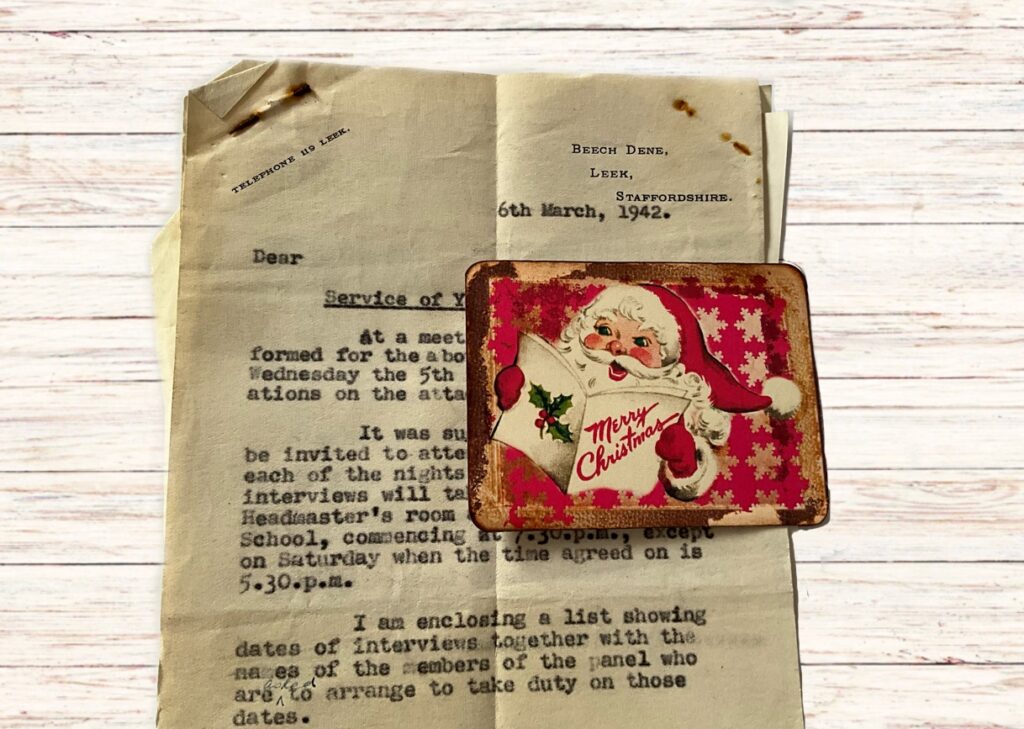 TELEPHONE 119 LEEK.
BEECH DENE,
LEEK,
STAFFORDSHIRE.
6th March, 1942.
Dear
Service of Y
At a meet
formed for the abo
Wednesday the 5th
ations on the atta
It was su
be invited to atte
each of the nights
interviews will ta
Headmaster's room
School, commencing at 7.30.p.m., except
on Saturday when the time agreed on is
5.30.p.m.
I am enclosing a list showing
dates of interviews together with the
names of the members of the panel who
are asked to arrange to take duty on those
dates.
Merry
Christmas